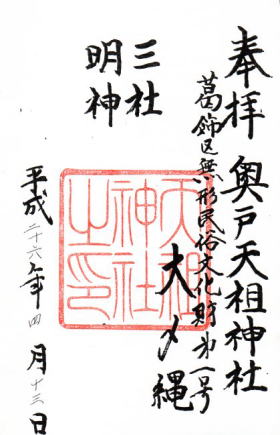 奉拝 奥戸天祖神社
葛飾区無形民俗文化財第一号
大〆縄
三社
明神
天祖
神社
之印
平成二十六年四月十三日